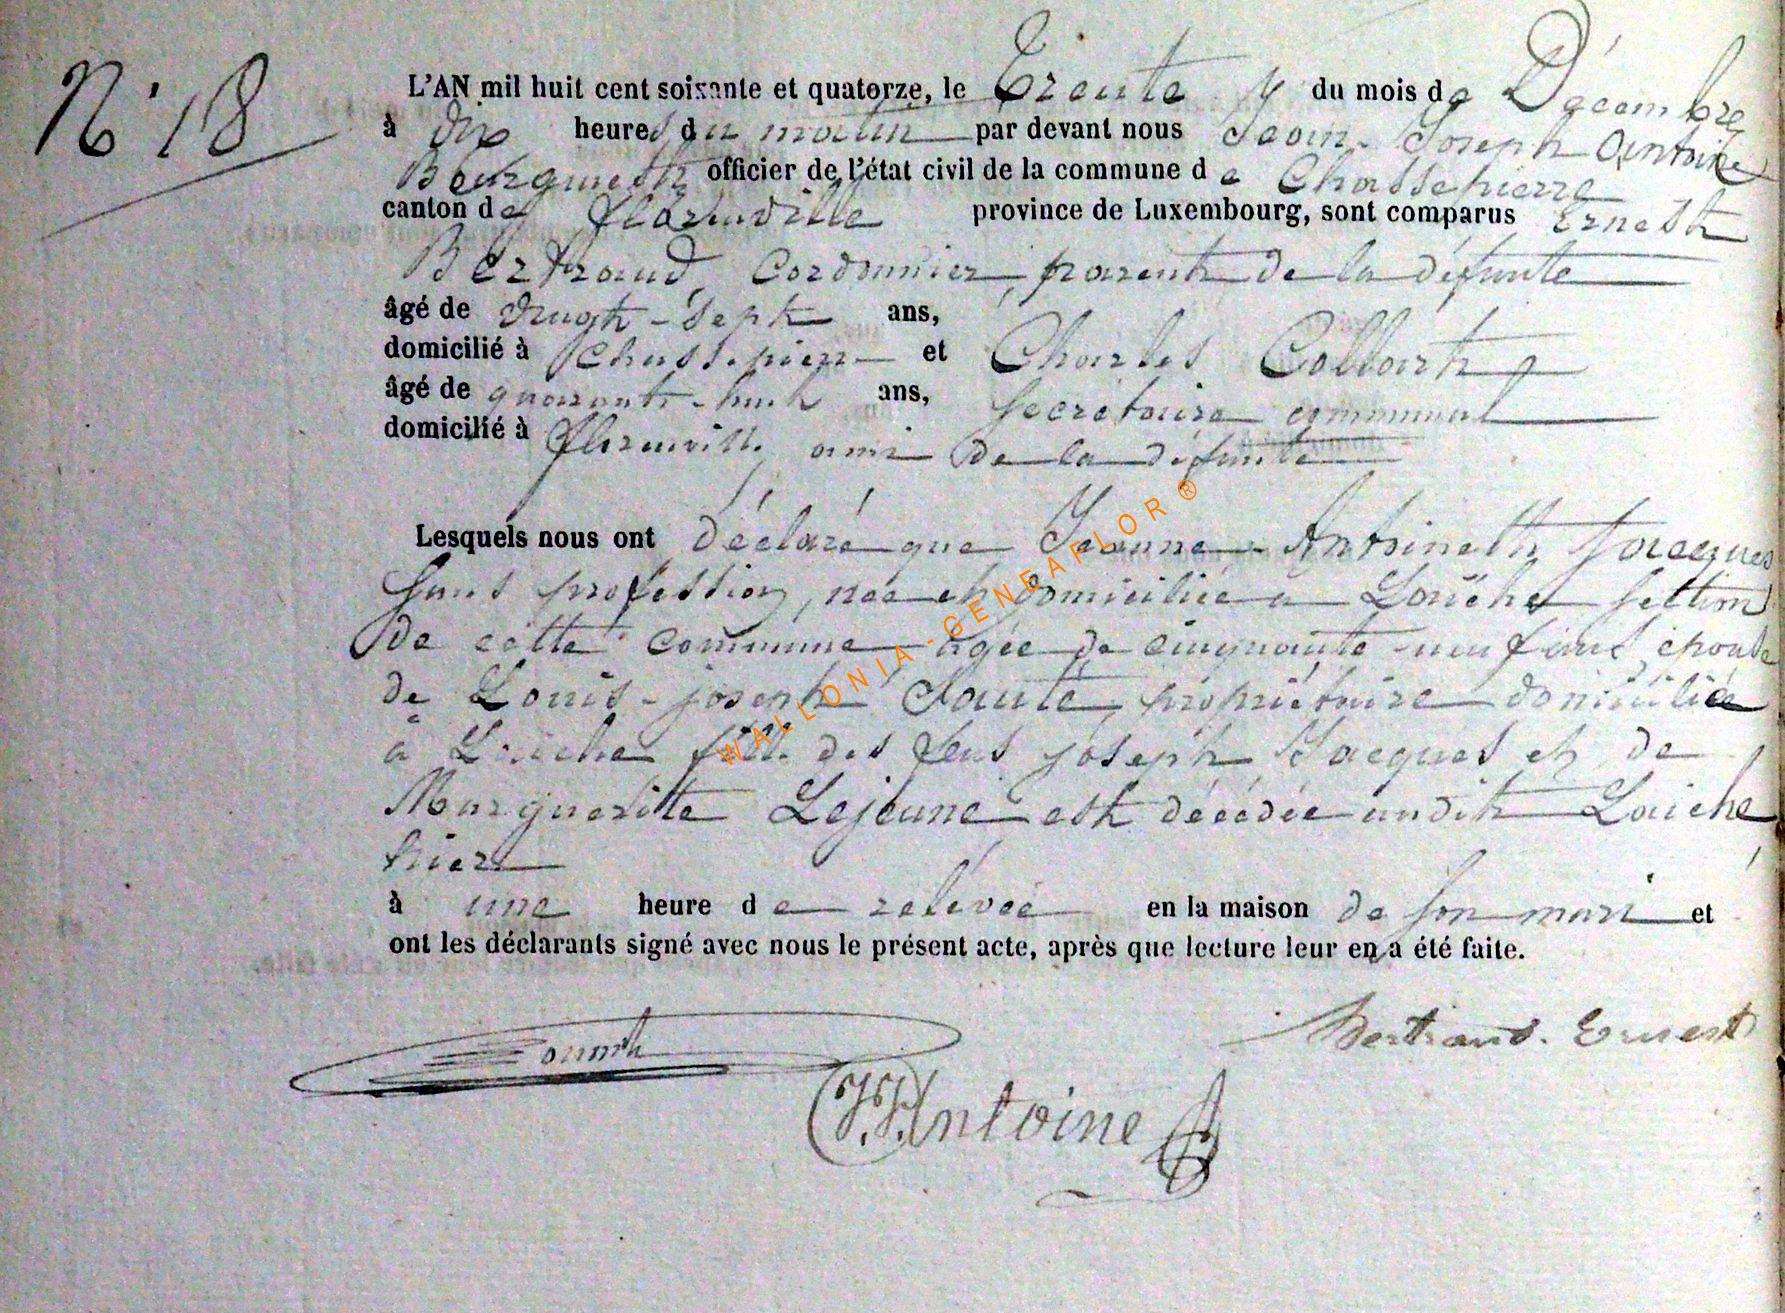 N° 18
L'AN mil huit cent soixante et quatorze, le Trente du mois de Décembre
à dix heures du matin par devant nous Jean-Joseph Antoine
Bourgmestre officier de l'état civil de la commune de Chassepierre
canton de Florenville province de Luxembourg, sont comparus Ernest
Bertrand, Cordonnier, parent de la défunte
âgé de vingt-sept ans,
domicilié à Chassepierre et Charles Collart
âgé de quarante-huit ans, Secrétaire communal
domicilié à Florenville, ami de la défunte
Lesquels nous ont déclaré que Jeanne-Antoinette Jacques
sans profession, née et domiciliée à Laiche section
de cette commune âgée de cinquante-neuf ans, épouse
de Louis-joseph Santé, propriétaire domiciliée
à Laiche fille des feus joseph Jacques et de
Marguerite Lejeune est décédée audit Laiche,
hier
à une heure de relevée en la maison de son mari et
ont les déclarants signé avec nous le présent acte, après que lecture leur en a été faite.
Bertrand. Ernest
J.J. Antoine
WALLONIA-GENEAFLOR ®